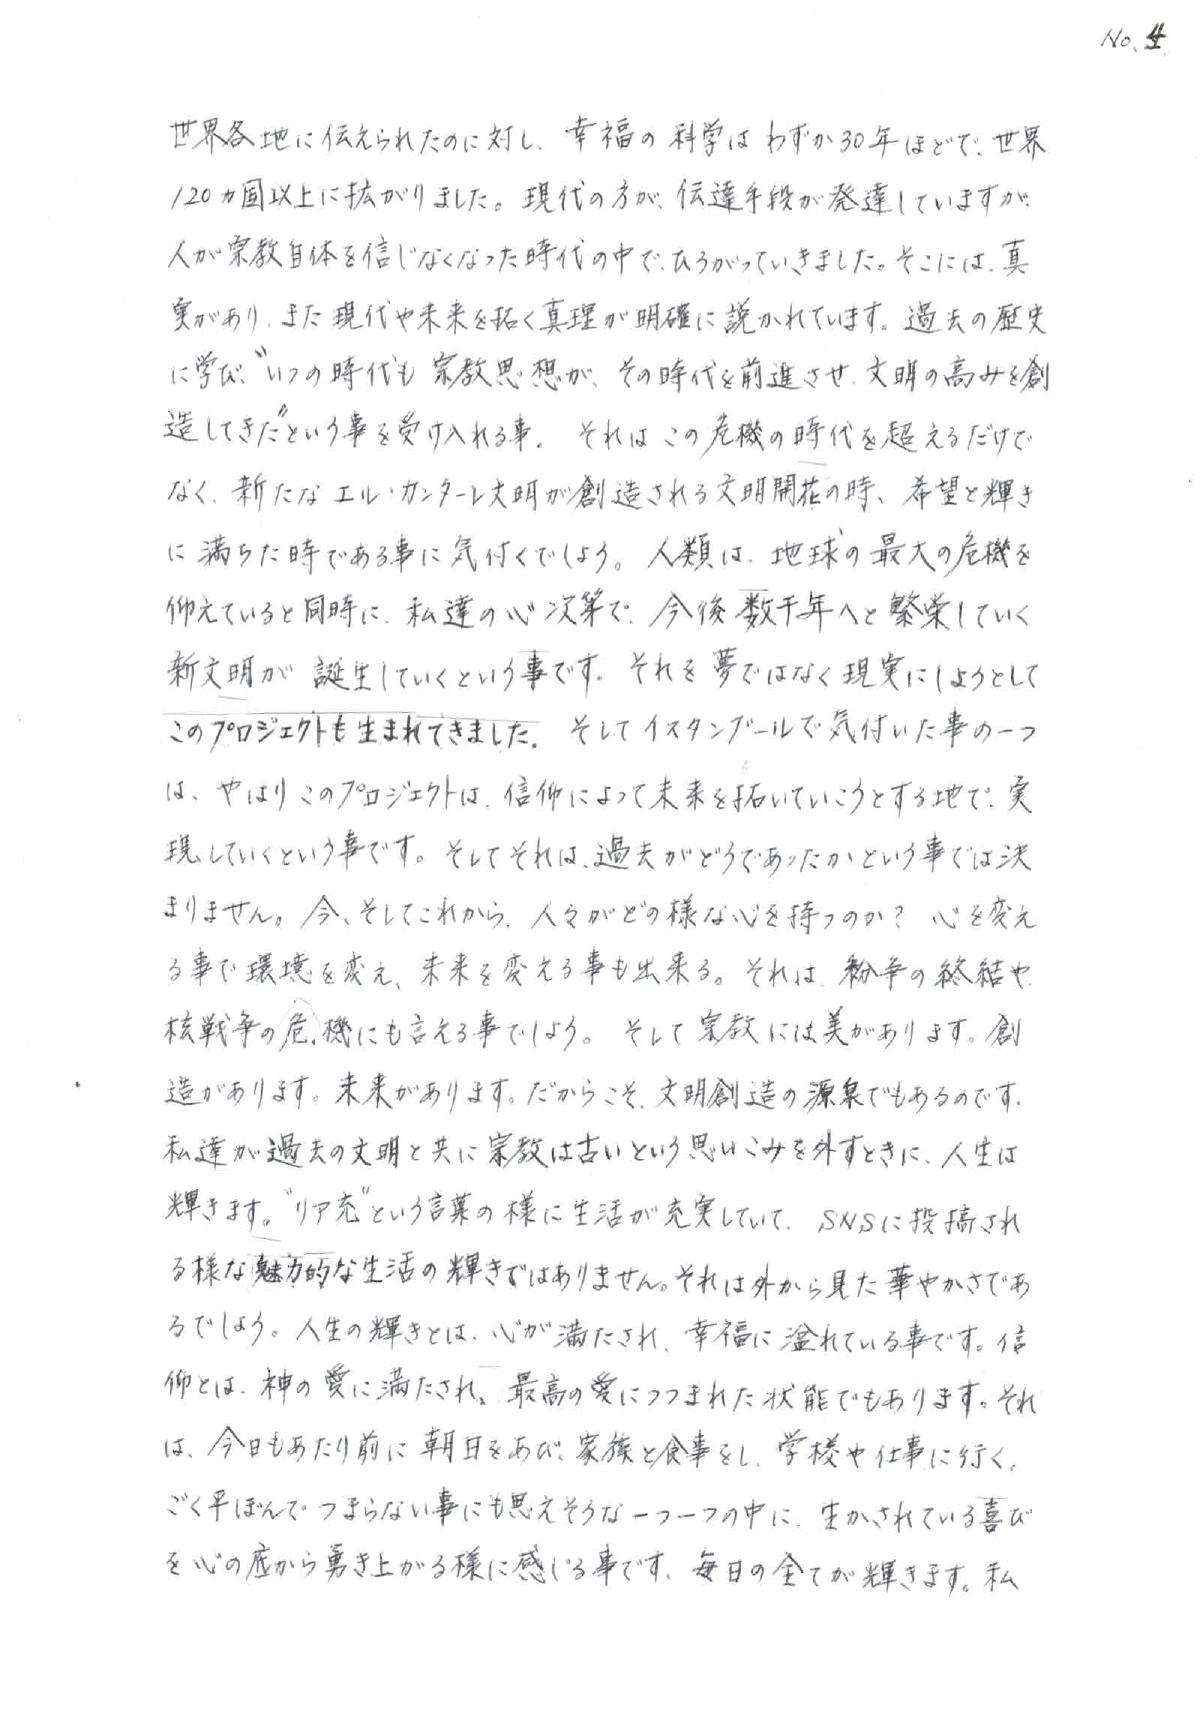 No.4
世界各地に伝えられたのに対し、幸福の科学はわずか30年ほどで、世界
120ヵ国以上に拡がりました。現代の方が、伝達手段が発達していますが、
人が宗教自体を信じなくなった時代の中で、ひろがっていきました。そこには、真
実があり、また現代や未来を拓く真理が明確に説かれています。過去の歴史
に学び、“いつの時代も宗教思想が、その時代を前進させ、文明の高みを創
造してきた”という事を受け入れる事。それはこの危機の時代を超えるだけで
なく、新たなエル・カンターレ文明が創造される文明開花の時、希望と輝き
に満ちた時である事に気付くでしょう。人類は、地球の最大の危機を
仰えていると同時に、私達の心次第で、今後数千年へと繁栄していく
新文明が誕生していくという事です。それを夢ではなく現実にしようとして
このプロジェクトも生まれてきました。そしてイスタンブールで気付いた事の一つ
は、やはりこのプロジェクトは、信仰によって未来を拓いていこうとする地で、実
現していくという事です。そしてそれは、過去がどうであったかという事では決
まりません。今、そしてこれから、人々がどの様な心を持つのか?心を変え
る事で環境を変え、未来を変える事も出来る。それは、紛争の終結や、
核戦争の危機にも言える事でしょう。そして宗教には美があります。創
造があります。未来があります。だからこそ、文明創造の源泉でもあるのです。
私達が過去の文明と共に宗教は古いという思いこみを外すときに、人生は
輝きます。“リア充”という言葉の様に生活が充実していて、SNSに投稿され
る様な魅力的な生活の輝きではありません。それは外から見た華やかさであ
るでしょう。人生の輝きとは、心が満たされ、幸福に溢れている事です。信
仰とは、神の愛に満たされ、最高の愛につつまれた状態でもあります。それ
は、今日もあたり前に朝日をあび、家族と食事をし、学校や仕事に行く。
ごく平ぼんでつまらない事にも思えそうな一つ一つの中に、生かされている喜び
を心の底から勇き上がる様に感じる事です。毎日の全てが輝きます。私